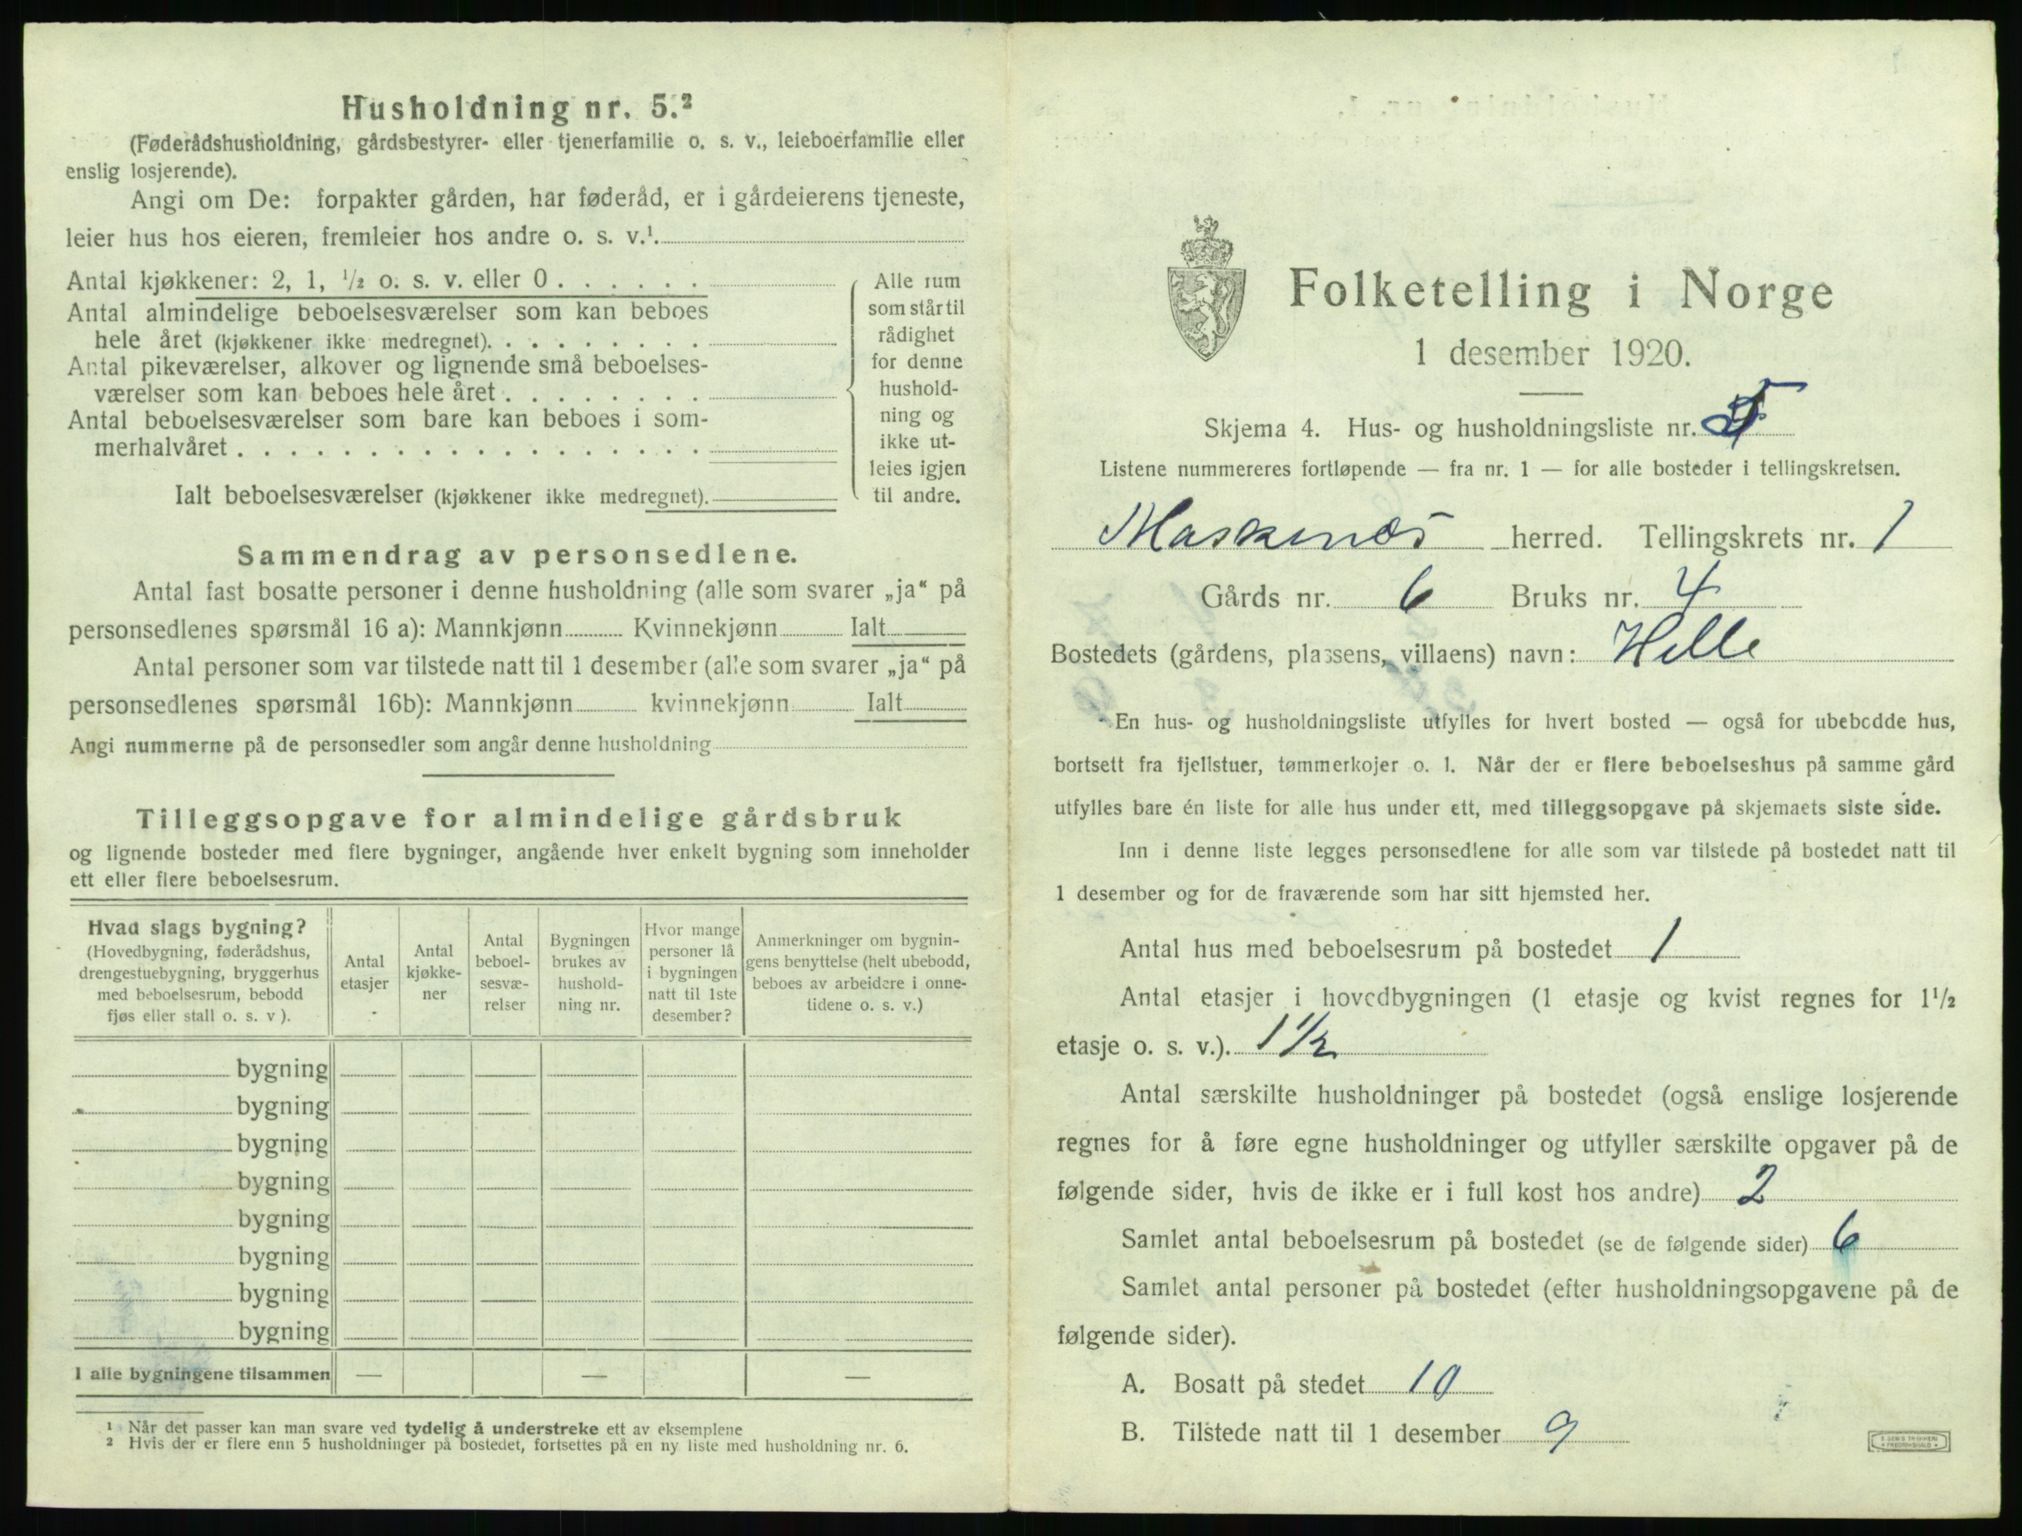 Husholdning nr. 5.²
(Føderådshusholdning, gårdsbestyrer- eller tjenerfamilie o. s. v., leieboerfamilie eller
enslig losjerende).
Angi om De: forpakter gården, har føderåd, er i gårdeierens tjeneste,
leier hus hos eieren, fremleier hos andre o. s. v.¹.
Antal kjøkkener: 2, 1, ½ o. s. v. eller 0 . . . . . .
Antal almindelige beboelsesværelser som kan beboes
hele året (kjøkkener ikke medregnet). . . . . . . . .
Antal pikeværelser, alkover og lignende små beboelses-
værelser som kan beboes hele året . . . . . . . .
Antal beboelsesværelser som bare kan beboes i som-
merhalvåret . . . . . . . . . . . . . . . . . .
Ialt beboelsesværelser (kjøkkener ikke medregnet).
Alle rum
som står til
rådighet
for denne
hushold-
ning og
ikke ut-
leies igjen
til andre.
Sammendrag av personsedlene.
Antal fast bosatte personer i denne husholdning (alle som svarer „ja“ på
personsedlenes spørsmål 16 a): Mannkjønn Kvinnekjønn Ialt
Antal personer som var tilstede natt til 1 desember (alle som svarer „ja“ på
personsedlenes spørsmål 16b): Mannkjønn kvinnekjønn Ialt
Angi nummerne på de personsedler som angår denne husholdning
Tilleggsopgave for almindelige gårdsbruk
og lignende bosteder med flere bygninger, angående hver enkelt bygning som inneholder
ett eller flere beboelsesrum.
Hvad slags bygning?
(Hovedbygning, føderådshus,
drengestuebygning, bryggerhus
med beboelsesrum, bebodd
fjøs eller stall o. s. v ).
Antal
etasjer
Antal
kjøkke-
ner
Antal
beboel-
sesvæ-
relser
Bygningen
brukes av
hushold-
ning nr.
Hvor mange
personer lå
i bygningen
natt til 1ste
desember?
Anmerkninger om bygnin-
gens benyttelse (helt ubebodd,
beboes av arbeidere i onne-
tidene o. s. v.)
bygning
bygning
bygning
bygning
bygning
bygning
bygning
bygning
I alle bygningene tilsammen — — —
¹ Når det passer kan man svare ved tydelig å understreke ett av eksemplene
² Hvis der er flere enn 5 husholdninger på bostedet, fortsettes på en ny liste med husholdning nr. 6.
Folketelling i Norge
1 desember 1920.
Skjema 4. Hus- og husholdningsliste nr. 5
Listene nummereres fortløpende — fra nr. 1 — for alle bosteder i tellingskretsen.
Moskenes herred. Tellingskrets nr. 1
Gårds nr. 6 Bruks nr. 4
Bostedets (gårdens, plassens, villaens) navn: Helle
En hus- og husholdningsliste utfylles for hvert bosted — også for ubebodde hus,
bortsett fra fjellstuer, tømmerkojer o. l. Når der er flere beboelseshus på samme gård
utfylles bare én liste for alle hus under ett, med tilleggsopgave på skjemaets siste side.
Inn i denne liste legges personsedlene for alle som var tilstede på bostedet natt til
1 desember og for de fraværende som har sitt hjemsted her.
Antal hus med beboelsesrum på bostedet 1
Antal etasjer i hovedbygningen (1 etasje og kvist regnes for 1½
etasje o. s. v.). 1½
Antal særskilte husholdninger på bostedet (også enslige losjerende
regnes for å føre egne husholdninger og utfyller særskilte opgaver på de
følgende sider, hvis de ikke er i full kost hos andre) 2
Samlet antal beboelsesrum på bostedet (se de følgende sider) 6
Samlet antal personer på bostedet (efter husholdningsopgavene på de
følgende sider).
A. Bosatt på stedet 10
B. Tilstede natt til 1 desember 9